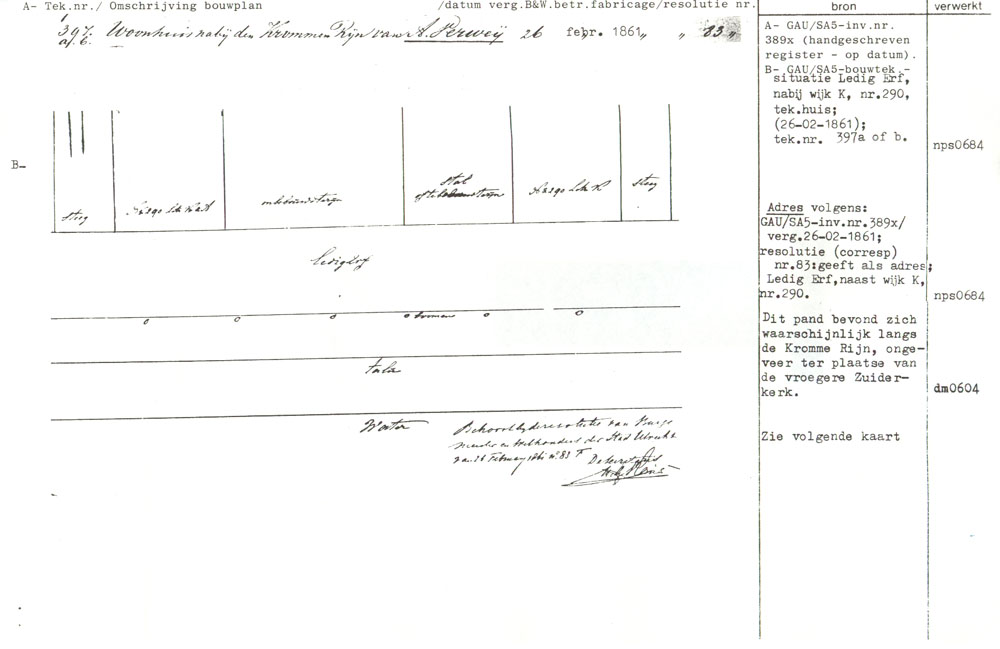 A- Tek.nr./ Omschrijving bouwplan /datum verg.B&W.betr.fabricage/resolutie nr. bron verwerkt
397. Woonhuis nabij den Krommen Rijn van A. Perweij 26 febr. 1861 „ „ 83 „
a/. 6.
A- GAU/SA5-inv.nr.
389x (handgeschreven
register - op datum).
B- GAU/SA5-bouwtek.-
situatie Ledig Erf,
nabij wijk K, nr.290,
tek.huis;
(26-02-1861);
tek.nr. 397a of b.
nps0684
B-
steeg
onbebouwd
stal
steeg
Ledig Erf
o o o o boomen o o
talu
Water
Behoort bij de resolutie van Burge
meester en Wethouders der Stad Utrecht
van 26 February 1861 no 83 F
De Secretaris
Adres volgens:
GAU/SA5-inv.nr.389x/
verg.26-02-1861;
resolutie (corresp)
nr.83:geeft als adres;
Ledig Erf,naast wijk K,
nr.290.
nps0684
Dit pand bevond zich
waarschijnlijk langs
de Kromme Rijn, onge-
veer ter plaatse van
de vroegere Zuider-
kerk.
dm0604
Zie volgende kaart